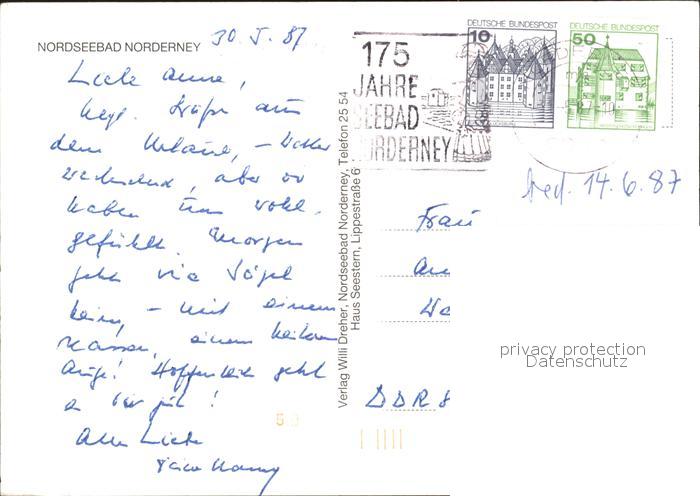 NORDSEEBAD NORDERNEY 30.5.87
Liebe Anne,
herzl. Grüße aus
dem Urlaub, – Wetter
wechselnd, aber wir
haben uns wohl
gefühlt. Morgen
geht die
heim, – mit einem
nassen, einem heiteren
Auge! Hoffentlich geht
es Dir gut!
Alles Liebe
Verlag Willi Dreher, Nordseebad Norderney, Telefon 25 54
Haus Seestern, Lippestraße 6
175
JAHRE
SEEBAD
NORDERNEY
DEUTSCHE BUNDESPOST
10
DEUTSCHE BUNDESPOST
50
bed. 14.6.87
Frau
DDR 8
privacy protection
Datenschutz